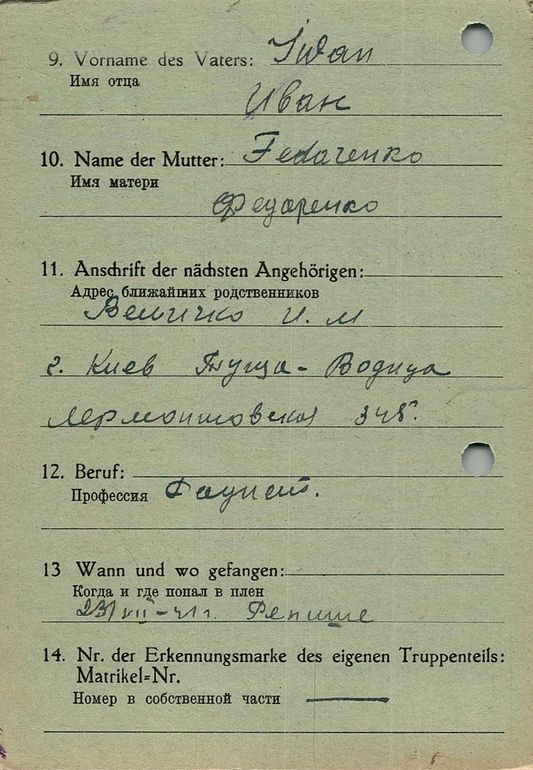 9. Vorname des Vaters: Iwan
Имя отца
Иван
10. Name der Mutter: Fedarenko
Имя матери
Федаренко
11. Anschrift der nächsten Angehörigen:
Адрес ближайших родственников
Величко И. М
г. Киев Пуща-Водица
Лермонтовская
12. Beruf:
Профессия
13 Wann und wo gefangen:
Когда и где попал в плен
14. Nr. der Erkennungsmarke des eigenen Truppenteils:
Matrikel=Nr.
Номер в собственной части